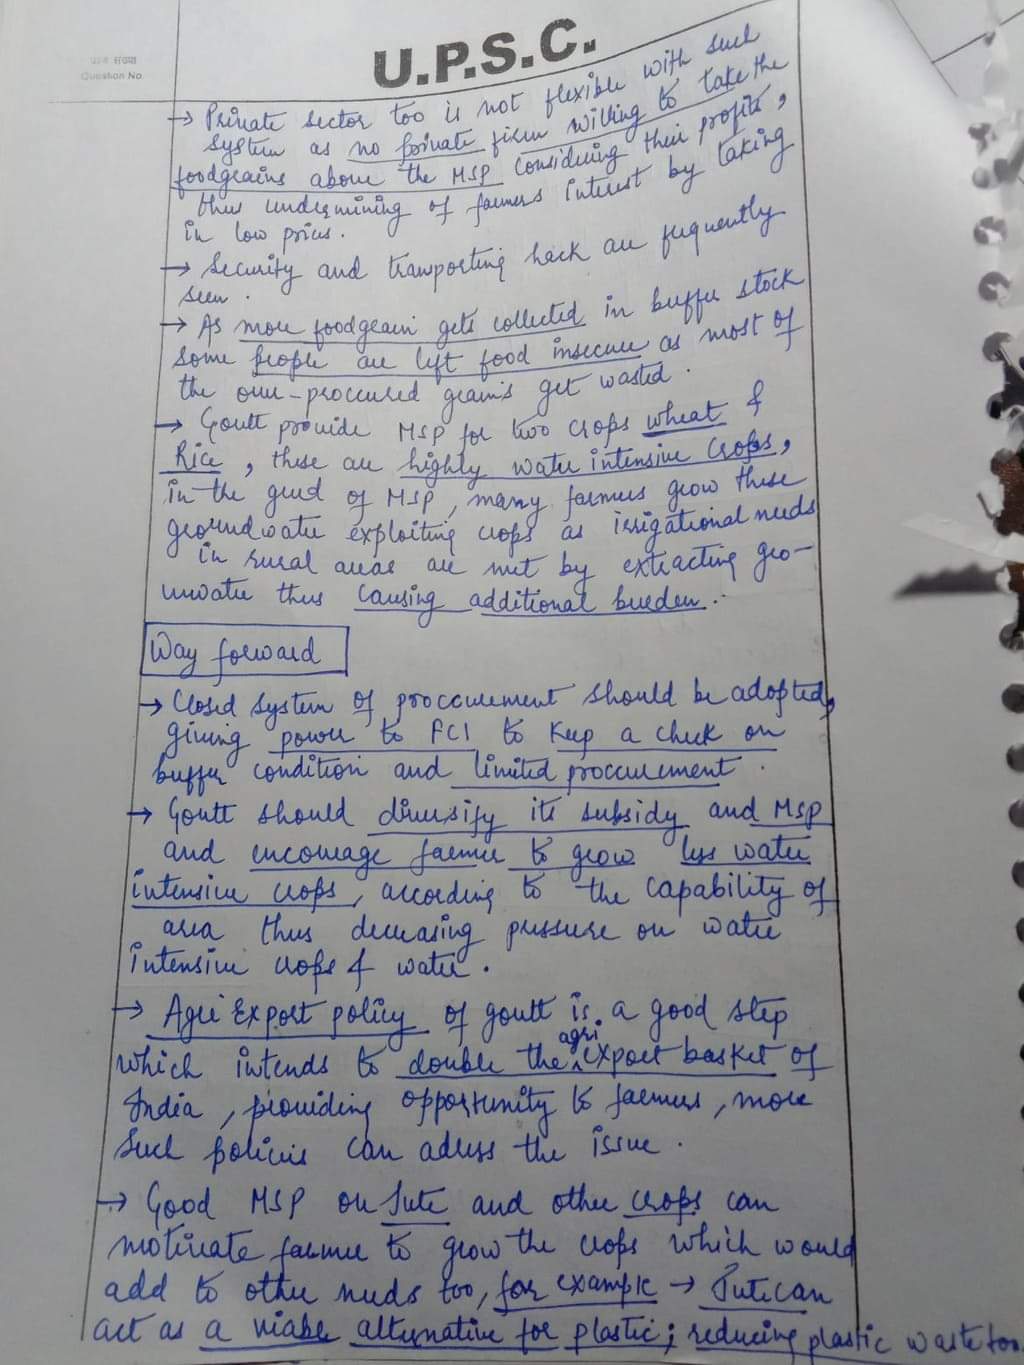 U.P.S.C.
Question No
→ Private sector too is not flexible with such
system as no private firm willing to take the
foodgrains above the MSP considering their profits,
thus undermining of farmers interest by taking
in low prices.
→ Security and transporting hack are frequently
seen.
→ As more foodgrain gets collected in buffer stock
some people are left food insecure as most of
the over-proccured grains get wasted.
→ Govtt provide MSP for two crops wheat &
Rice, these are highly water intensive crops,
in the greed of MSP, many farmers grow these
groundwater exploiting crops as irrigational needs
in rural areas are met by extracting gro-
unwater thus causing additional burden.
Way forward
→ Closed system of proccurement should be adopted,
giving power to FCI to keep a check on
buffer condition and limited proccurement.
→ Govtt should diversify its subsidy and MSP
and encourage farmer to grow less water
intensive crops, according to the capability of
area thus decreasing pressure on water
intensive crops & water.
→ Agri Export policy of govtt is a good step
which intends to double the agri export basket of
India, providing opportunity to farmers, more
such policies can adress the issue.
→ Good MSP on Jute and other crops can
motivate farmer to grow the crops which would
add to other needs too, for example → Jute can
act as a viable alternative for plastic; reducing plastic waste too